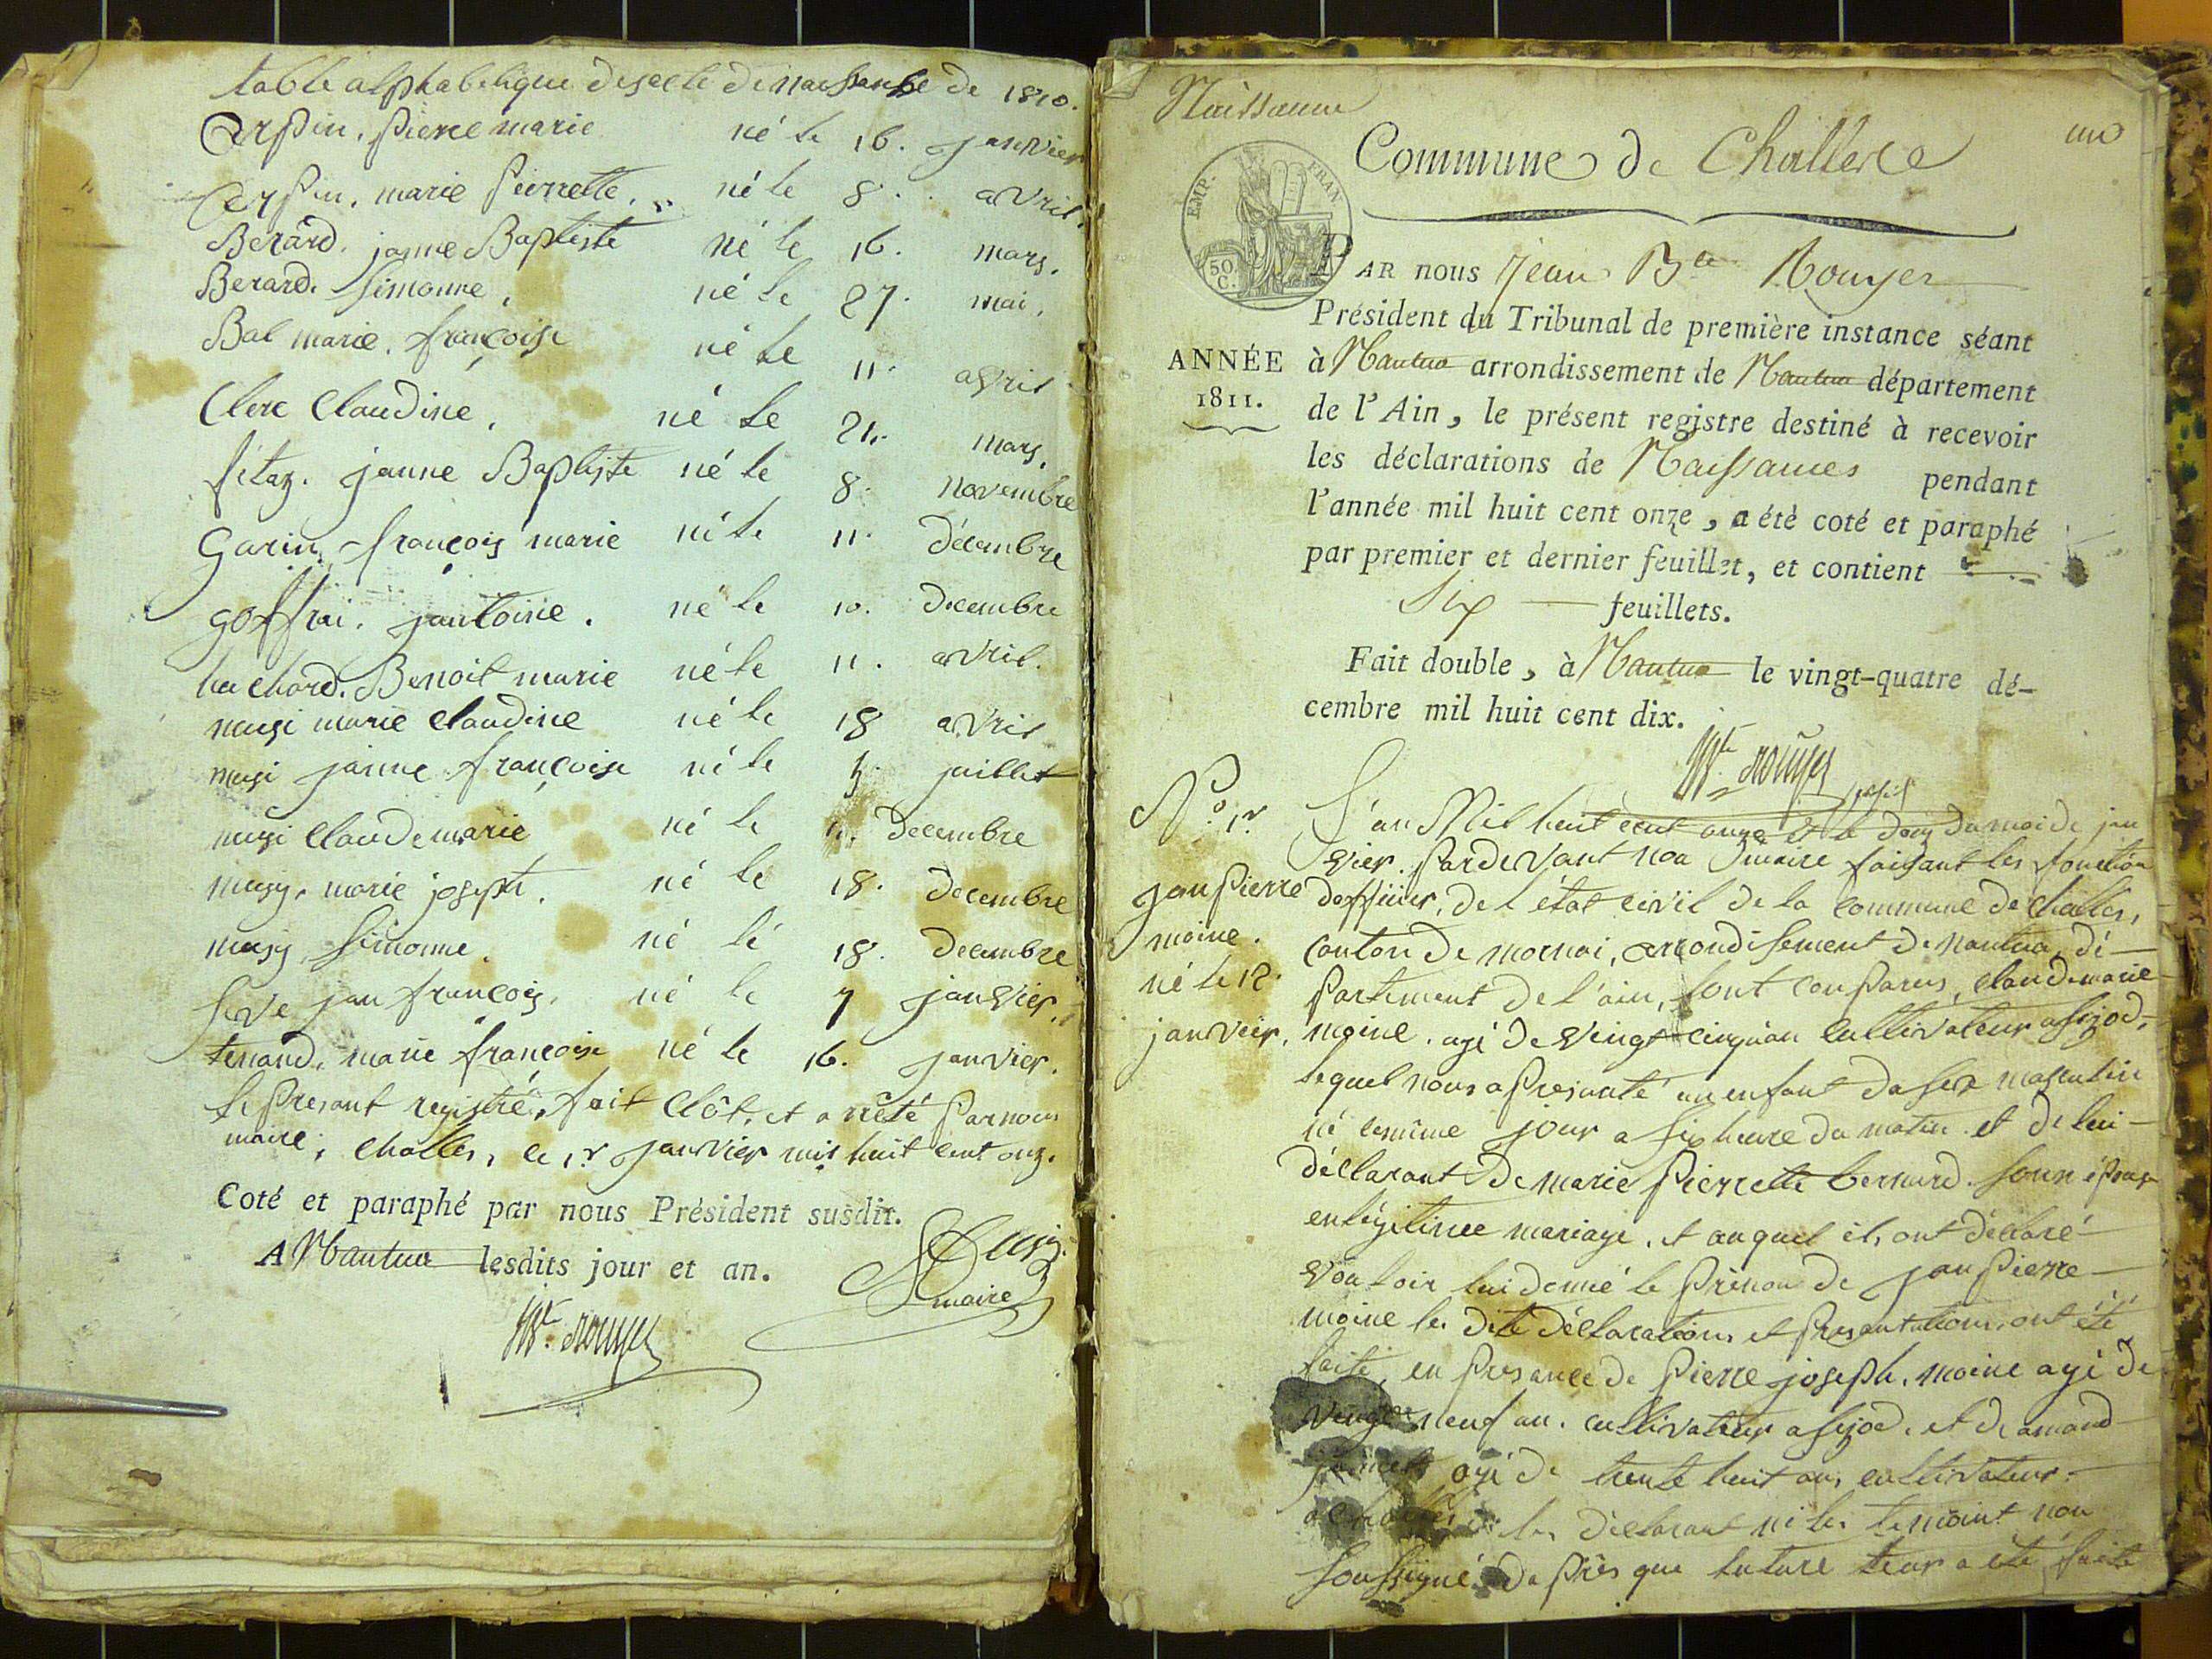 table alphabetique des acte de naissance de 1810.
Arpin, pierre marie né le 16. janvier
Arpin, marie pierrette, né le 8. avril,
Berard, janne Baptiste né le 16. mars,
Berard, simonne, né le 27. mai,
Bal marie, françoise né le 11. avril
Clerc Claudine, né le 21. mars,
fitaz. janne Baptiste né le 8. novembre
Garin, françois marie né le 11. décembre
goffrai, jantoine. né le 10. decembre
Benoit marie né le 11. avril.
musi marie claudine né le 18 avril
musi janne françoise né le 5. juillet
musi claude marie né le decembre
musy, marie joseph, né le 18. decembre
musy, simonne, né lé 18. decembre
seve jan françois, né le 7 janvier,
tenand, marie françoise né le 16. janvier.
le presant registre, fait clôt, et arrêté par nous
maire, challes, le 1.r janvier mil huit cent onz.
Coté et paraphé par nous Président susdit.
A Nantua lesdits jour et an.
Musy
maire
Bte. rouyer
Naissance
Commune de Challes
EMP. FRAN
50. C.
PAR nous Jean Bte Rouyer
Président du Tribunal de première instance séant
ANNÉE à Nantua arrondissement de Nantua département
1811. de l'Ain, le présent registre destiné à recevoir
les déclarations de Naissances pendant
l'année mil huit cent onze, a été coté et paraphé
par premier et dernier feuillet, et contient
Six feuillets.
Fait double, à Nantua le vingt-quatre dé-
cembre mil huit cent dix.
Bte. rouyer
N.o 1.r
jan pierre
moine.
né le 12.
janvier,
L'an Mil huit cent onze et le douz du moi de jan
vier. par devant nou maire faisant les fonction
dofficier, de l'état civil de la commune de challes,
canton de mornai, arrondisement de nantua, dé-
partement de l'ain, sont conparus, claude marie
moine, agé de vingt cinq an cultivateur a sizod,
lequel nous a presanté un enfant du sexe masculin
né le même jour a six heure du matin et de lui
déclarant de marie pierrette bernard, sonn épouse
en légitime mariage, et auquel il, ont déclaré
vouloir lui donné le prénom de jan pierre
moine les dite déclarations et presantations, ont été
faite, en presance de pierre joseph, moine agé de
vingt neuf an, cultivateur a sizod, et de amand
agé de trente huit an, cultivateur
a challes, les déclarant ni les temoint non
soussigné, daprès que lecture leur a été faite